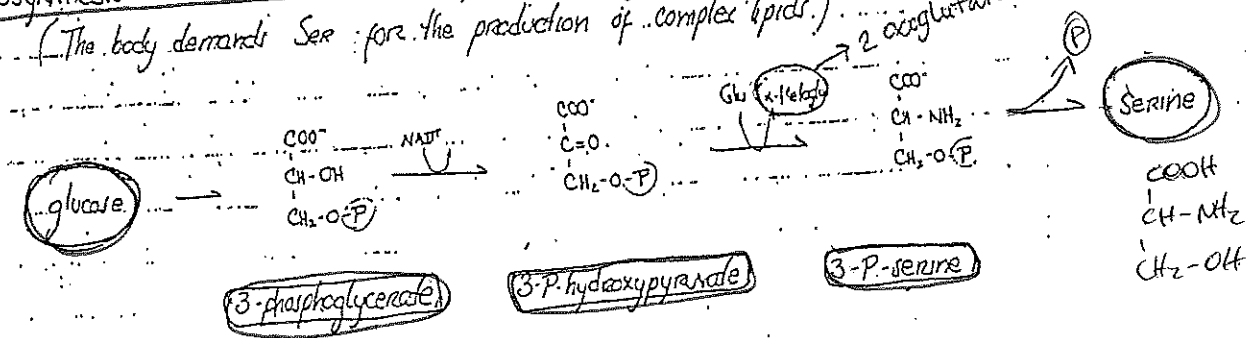 (The body demands Ser for the production of complex lipids.)
2 oxoglutar
P
COO⁻
CH-OH
CH₂-O-P
NAD⁺
COO⁻
C=O
CH₂-O-P
Glu
COO⁻
CH-NH₂
CH₂-O-P
Serine
COOH
CH-NH₂
CH₂-OH
glucose
3-phosphoglycerate
3-P-hydroxypyruvate
3-P-serine